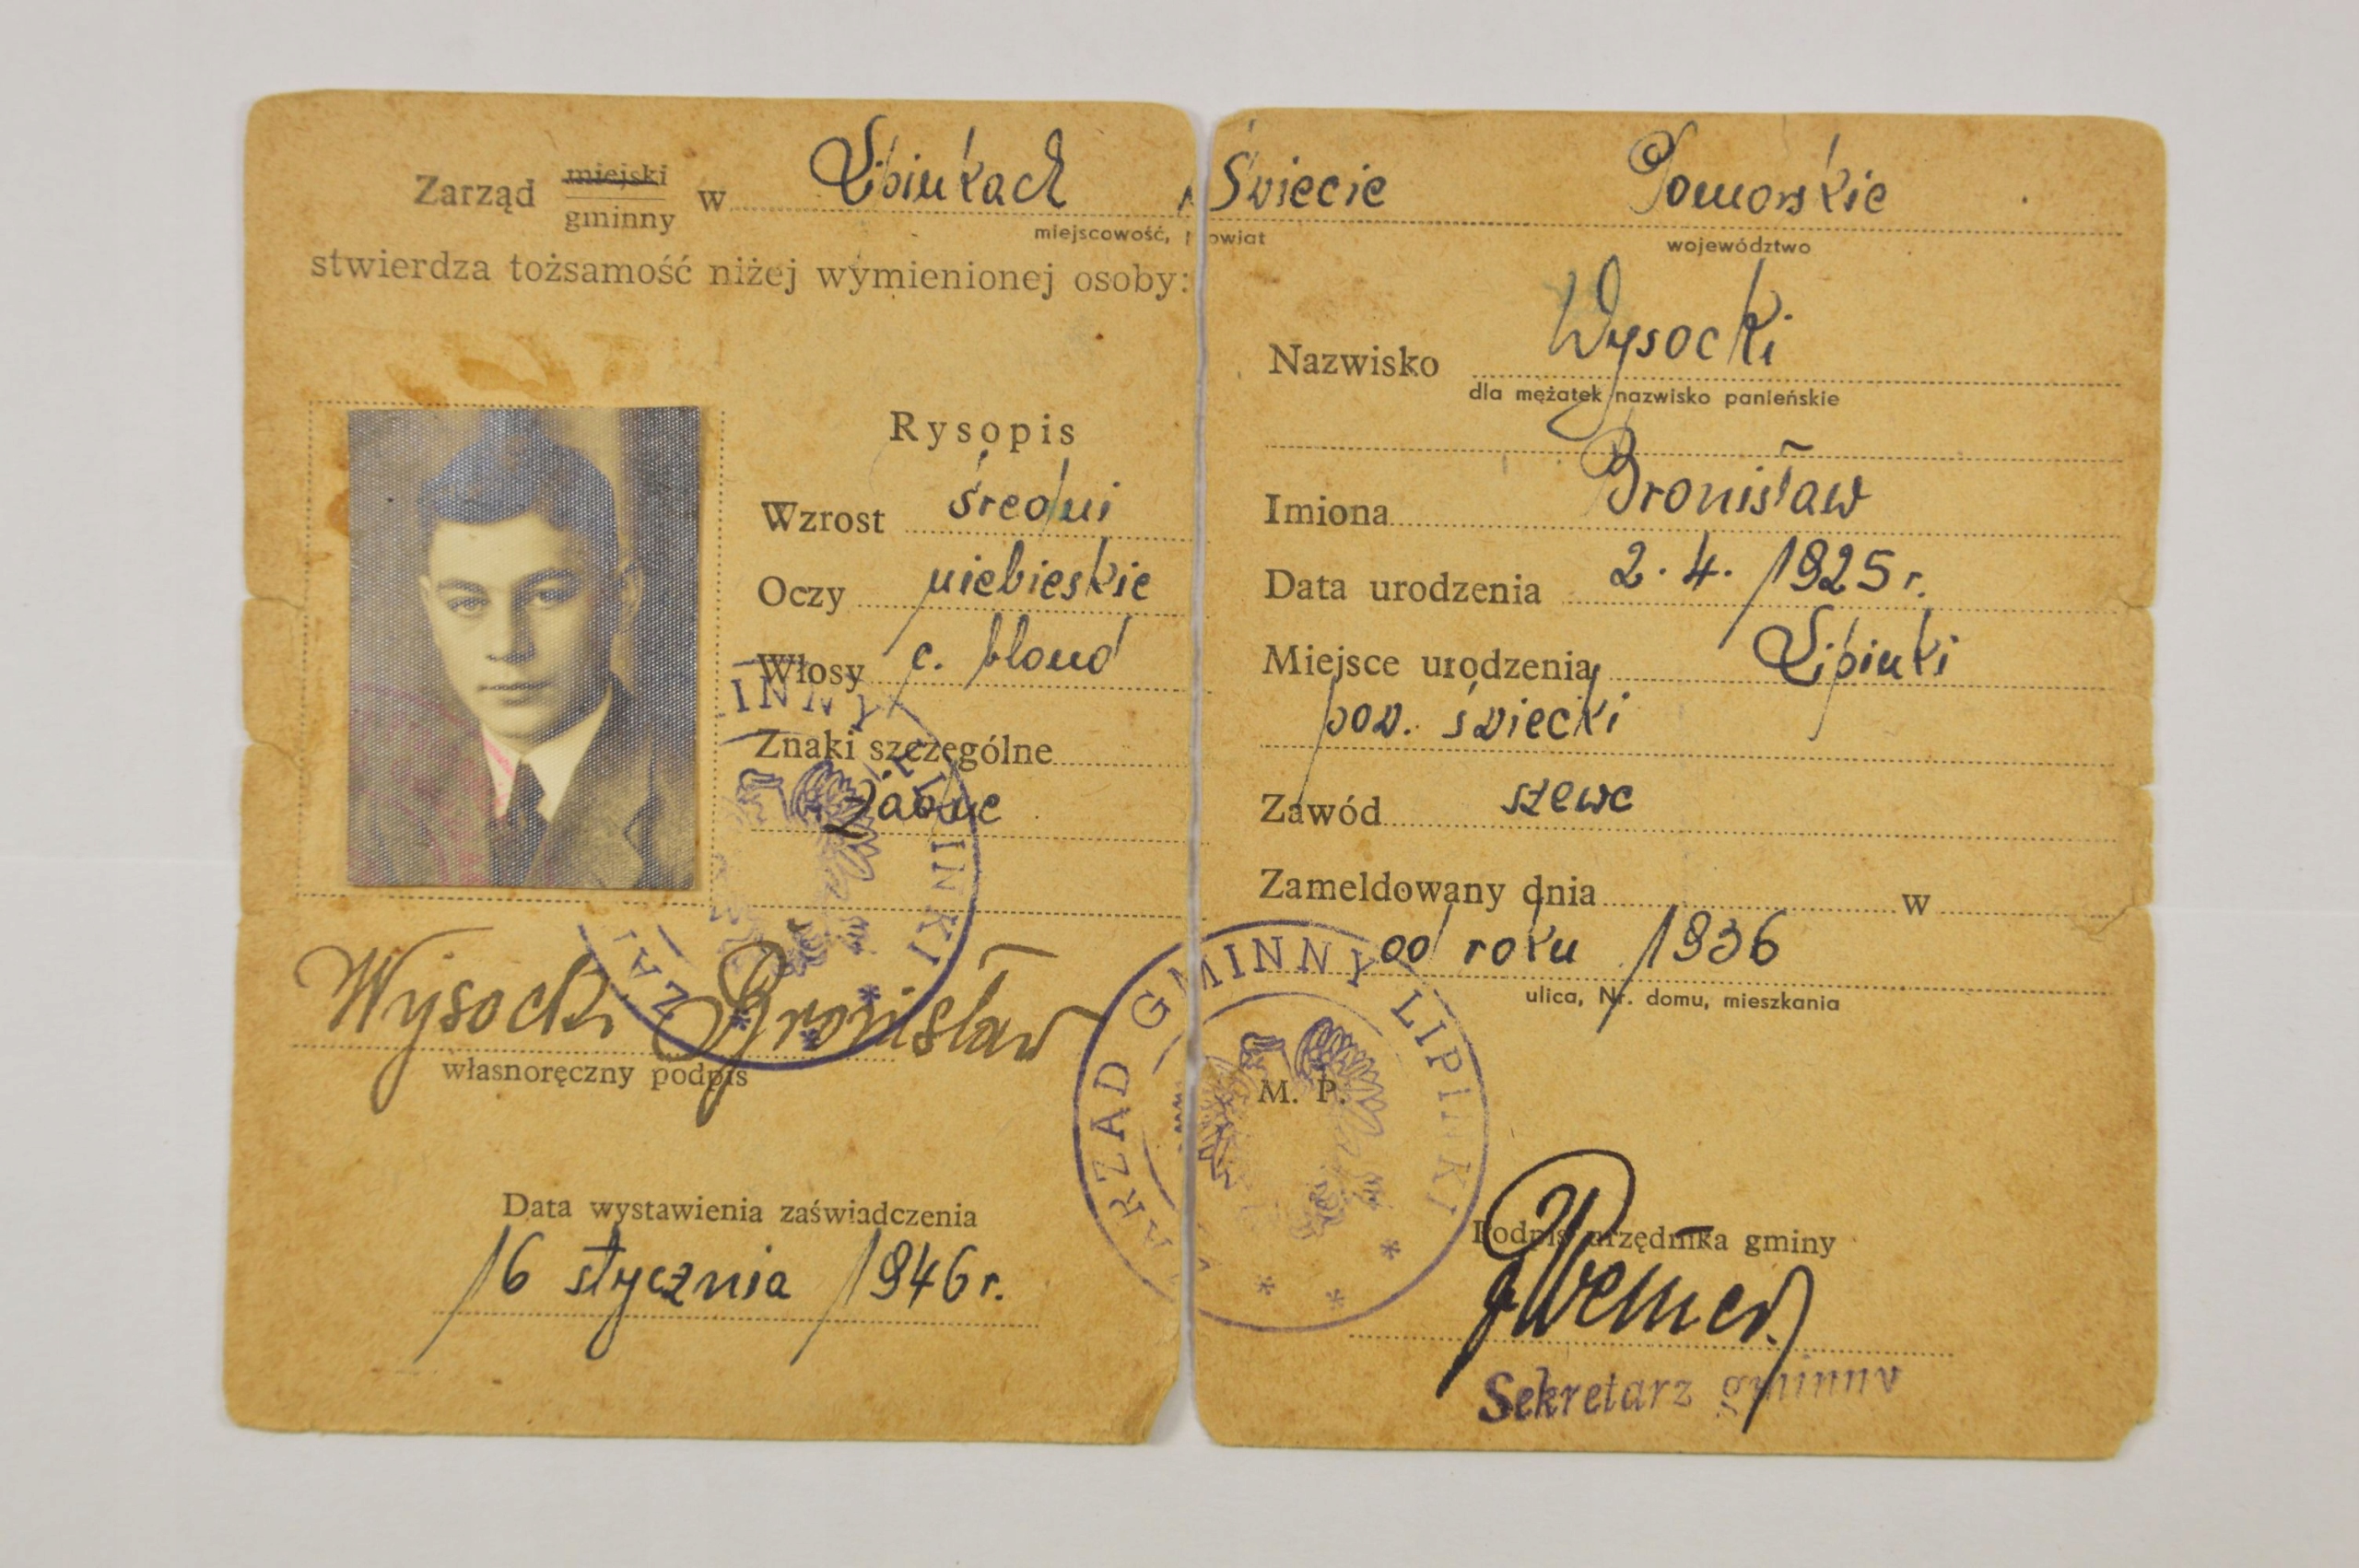 Zarząd miejski gminny w Lipinkach p. Świecie Pomorskie
miejscowość, powiat województwo
stwierdza tożsamość niżej wymienionej osoby:
Rysopis
Wzrost średni
Oczy niebieskie
Włosy c. blond
Znaki szczególne
Żadne
Wysocki Bronisław
własnoręczny podpis
Data wystawienia zaświadczenia
16 stycznia 1946 r.
Nazwisko Wysocki
dla mężatek nazwisko panieńskie
Imiona Bronisław
Data urodzenia 2. 4. 1925 r.
Miejsce urodzenia Lipinki
pow. świecki
Zawód szewc
Zameldowany dnia w
od roku 1936
ulica, Nr. domu, mieszkania
ZARZĄD GMINNY LIPINKI
M. P.
Podpis urzędnika gminy
Sekretarz gminny